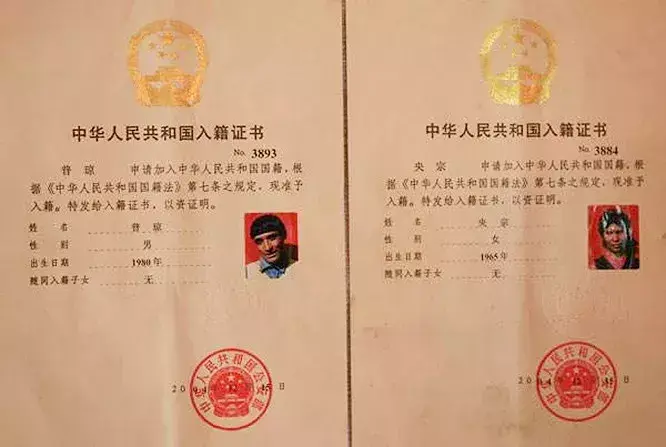 中华人民共和国入籍证书
No. 3893
普琼 申请加入中华人民共和国国籍，根
据《中华人民共和国国籍法》第七条之规定，现准予
入籍。特发给入籍证书，以资证明。
姓名 普琼
性别 男
出生日期 1980年
随同入籍子女 无
中华人民共和国公安部
2004年12月15日
中华人民共和国入籍证书
No. 3884
央宗 申请加入中华人民共和国国籍，根
据《中华人民共和国国籍法》第七条之规定，现准予
入籍。特发给入籍证书，以资证明。
姓名 央宗
性别 女
出生日期 1965年
随同入籍子女 无
中华人民共和国公安部
2004年12月15日